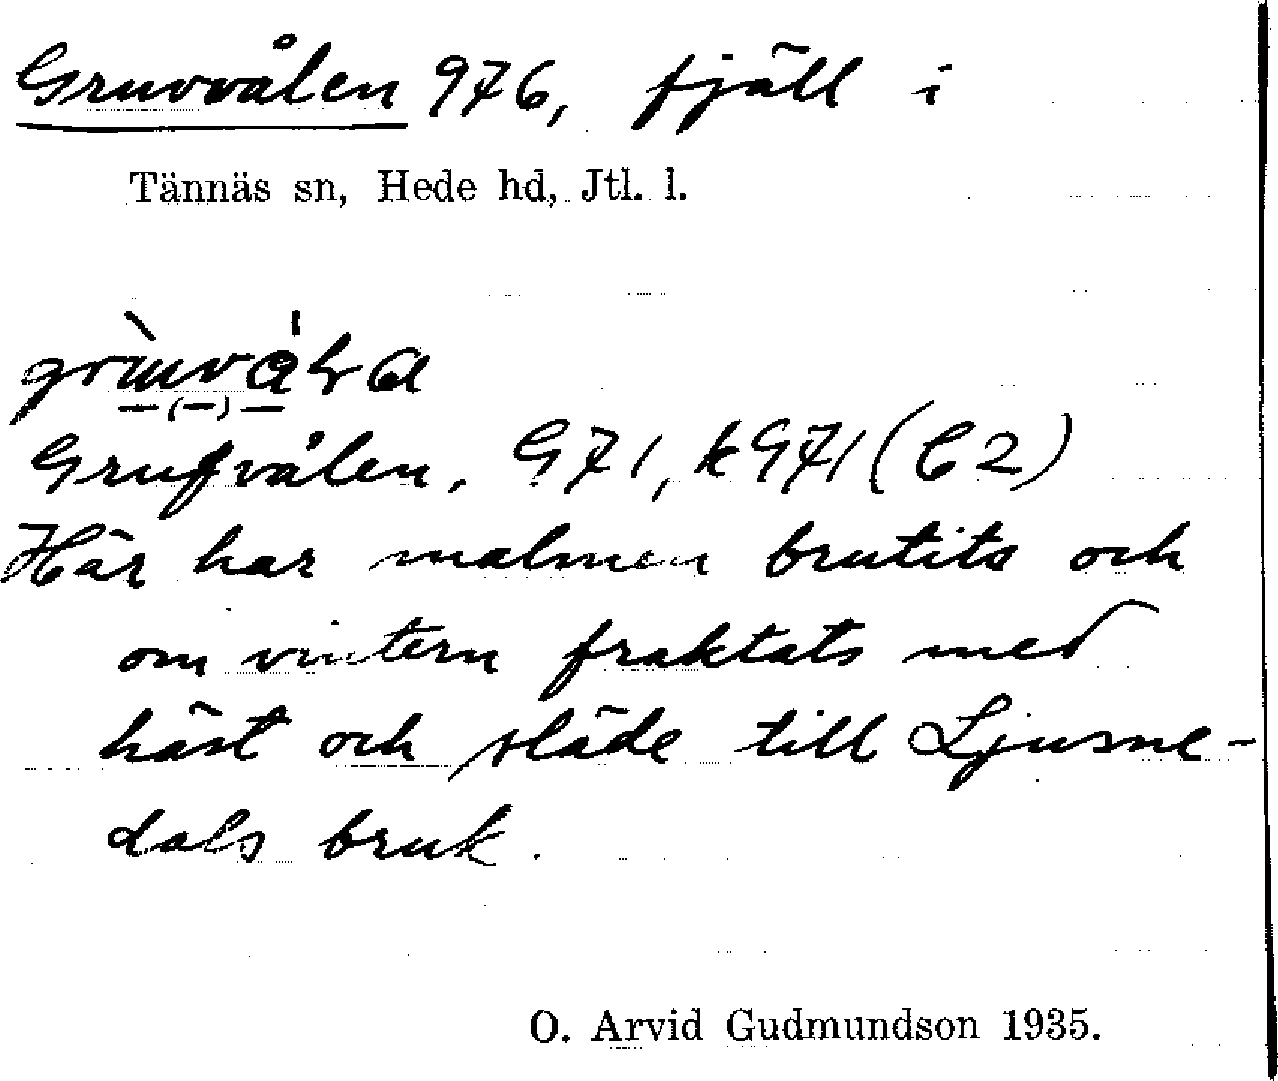 Gruvvålen 976, fjäll i
Tännäs sn, Hede hd, Jtl. l.
Grufvålen. G71, k971 (C2)
Här har malmen brutits och
om vintern fraktats med
häst och släde till Ljusne-
dals bruk.
O. Arvid Gudmundson 1935.